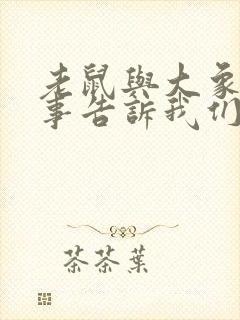 老鼠與大象
事告訴我们
茶茶葉